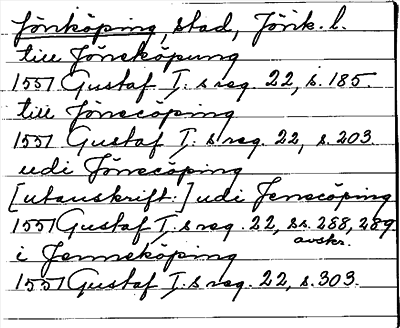 Jönköping, stad, Jönk. l.
till Jönsköpung
1551 Gustaf I. s reg. 22, s. 185.
till Jönecöping
1551 Gustaf I. s reg. 22, s. 203.
udi Jönecöping
[utanskrift:] udi Jenecöping
1551 Gustaf I. s reg. 22, ss. 288, 289
avskr.
i Jenneköping
1551 Gustaf I. s reg. 22, s. 303.